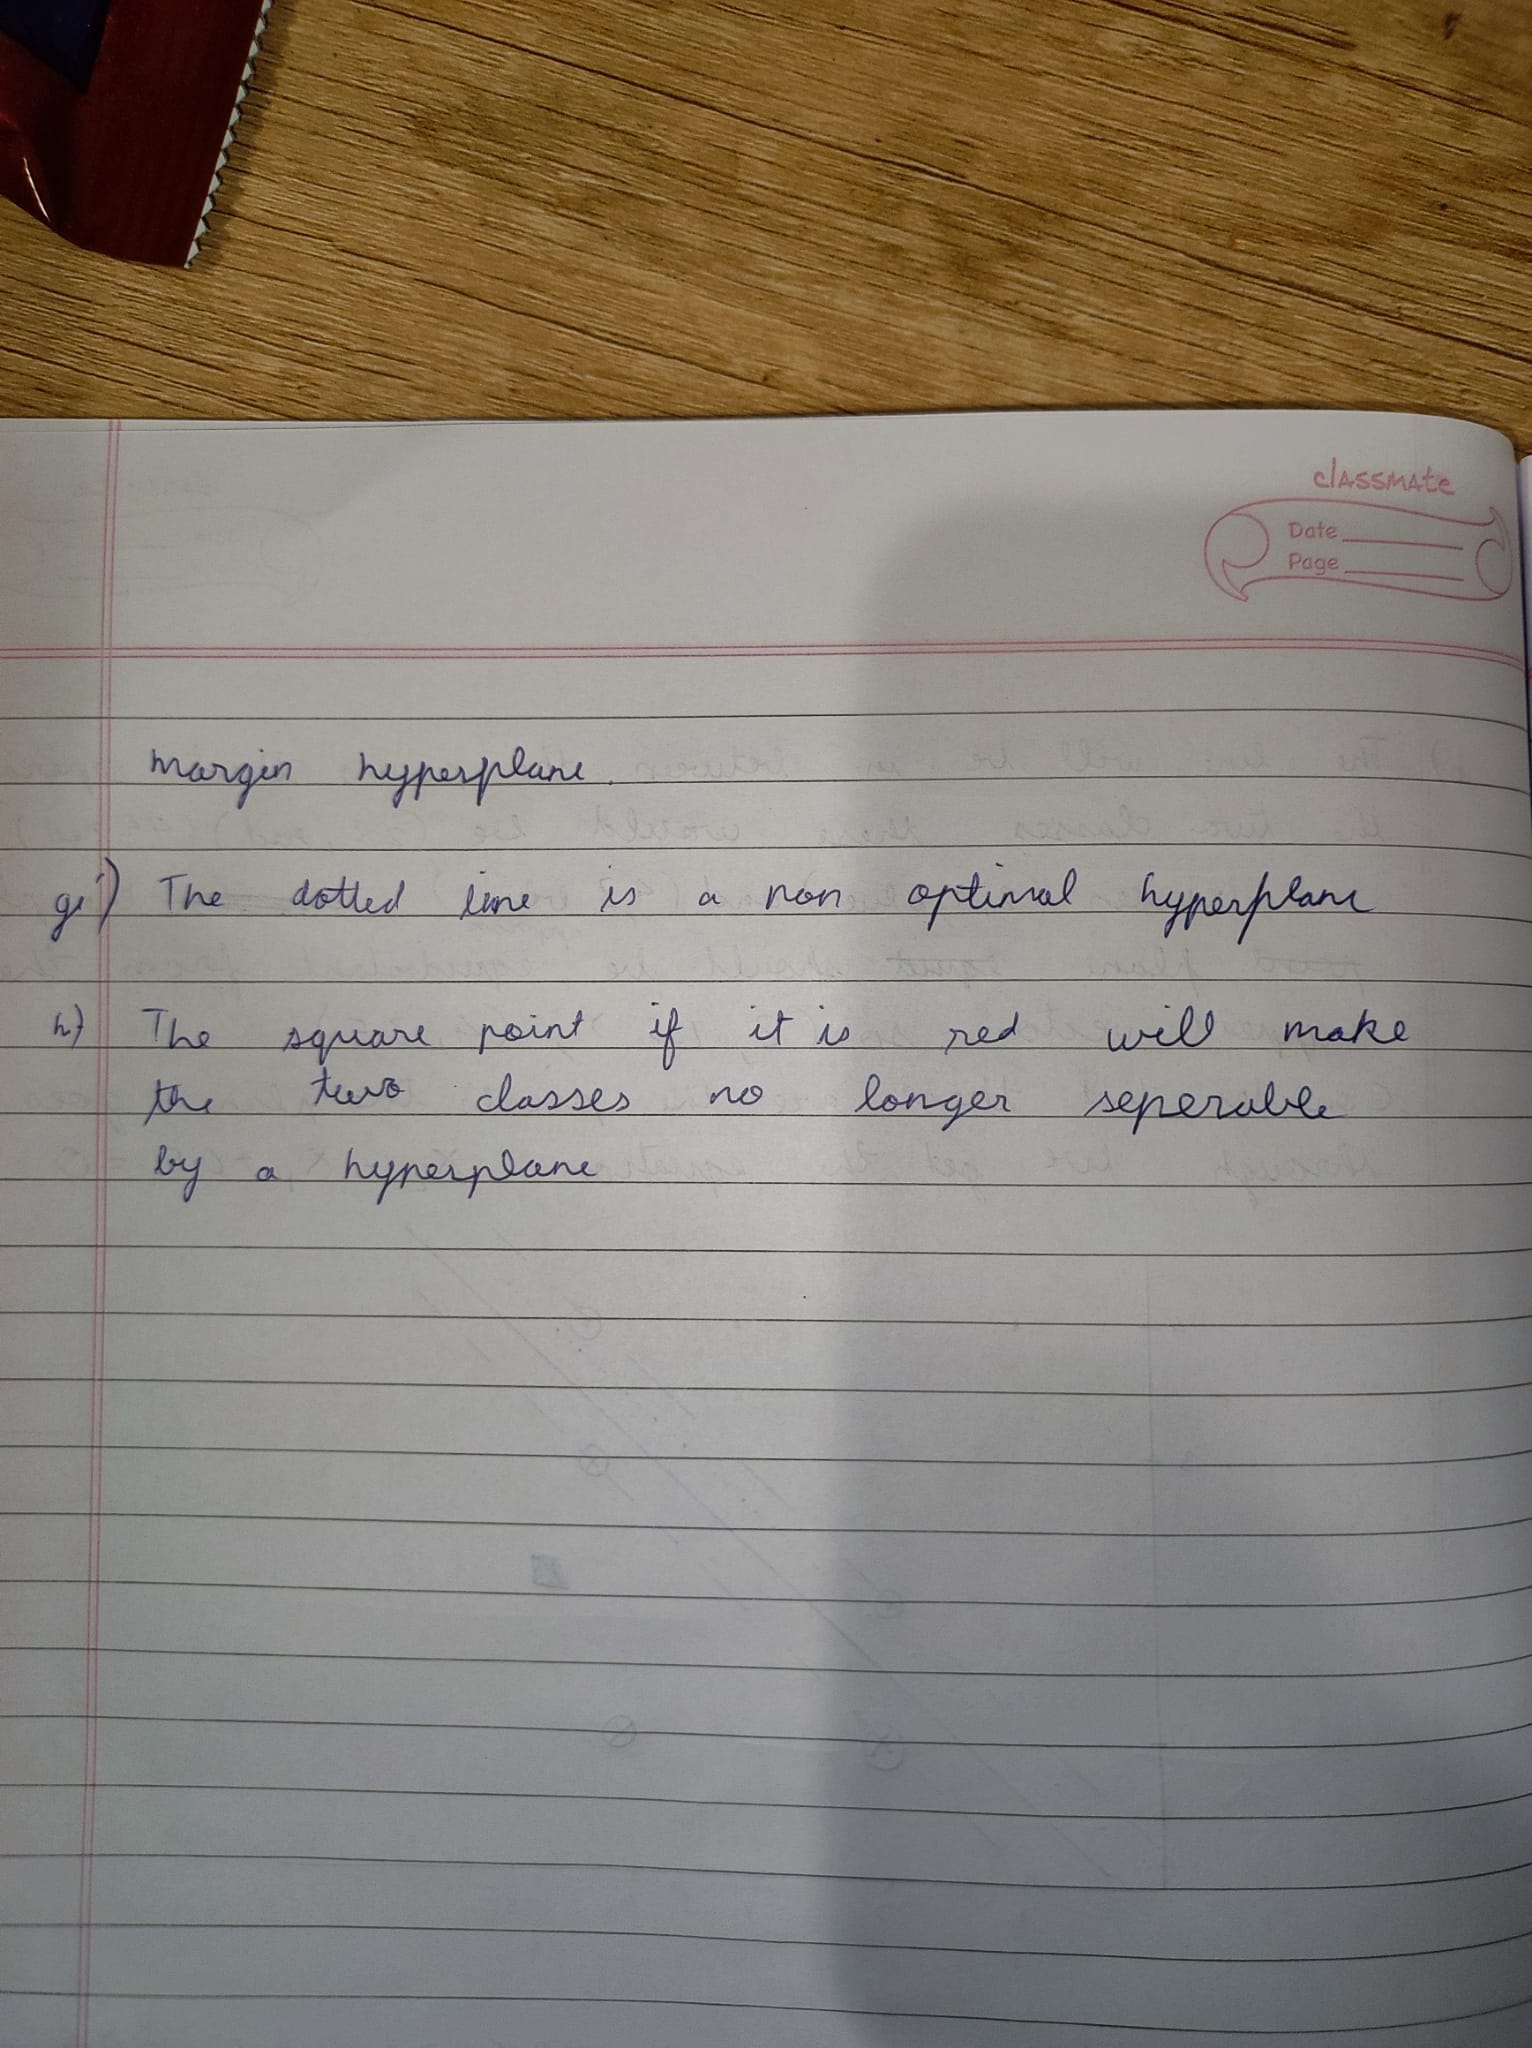 classmate
Date
Page
margin hyperplane.
g) The dotted line is a non optimal hyperplane
h) The square point if it is red will make
the two classes no longer seperable
by a hyperplane